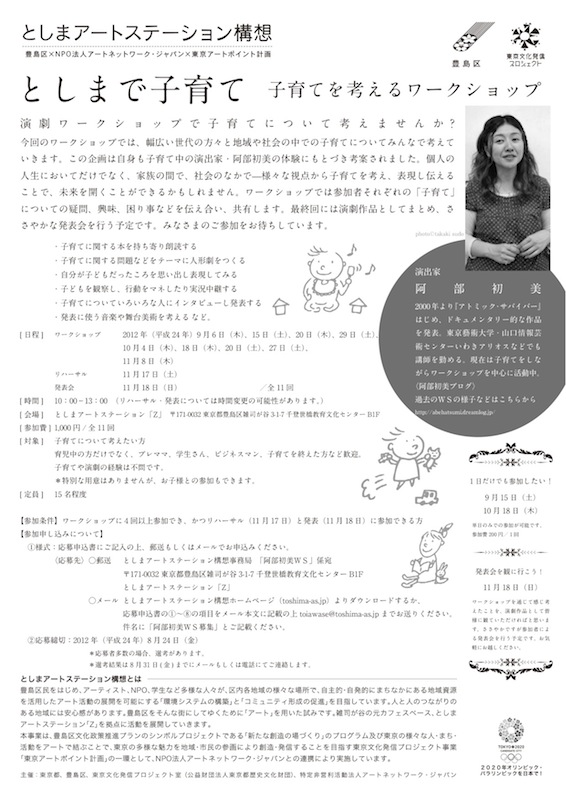 としまアートステーション構想
豊島区×NPO法人アートネットワーク・ジャパン×東京アートポイント計画
豊島区
東京文化発信
プロジェクト
としまで子育て 子育てを考えるワークショップ
演劇ワークショップで子育てについて考えませんか?
今回のワークショップでは、幅広い世代の方々と地域や社会の中での子育てについてみんなで考えて
いきます。この企画は自身も子育て中の演出家・阿部初美の体験にもとづき考案されました。個人の
人生においてだけでなく、家族の間で、社会のなかで―様々な視点から子育てを考え、表現し伝える
ことで、未来を開くことができるかもしれません。ワークショップでは参加者それぞれの「子育て」
についての疑問、興味、困り事などを伝え合い、共有します。最終回には演劇作品としてまとめ、さ
さやかな発表会を行う予定です。みなさまのご参加をお待ちしています。
・子育てに関する本を持ち寄り朗読する
・子育てに関する問題などをテーマに人形劇をつくる
・自分が子どもだったころを思い出し表現してみる
・子どもを観察し、行動をマネしたり実況中継する
・子育てについていろいろな人にインタビューし発表する
・発表に使う音楽や舞台美術を考える など。
演出家
阿部初美
2000年より『アトミック・サバイバー』
はじめ、ドキュメンタリー的な作品
を発表。東京藝術大学・山口情報芸
術センターいわきアリオスなどでも
講師を勤める。現在は子育てをしな
がらワークショップを中心に活動中。
(阿部初美ブログ)
過去のWSの様子などはこちらから
http://abehatsumi.dreamlog.jp/
[日程] ワークショップ 2012年(平成24年)9月6日(木)、15日(土)、20日(木)、29日(土)、
10月4日(木)、18日(木)、20日(土)、27日(土)、
11月8日(木)
リハーサル 11月17日(土)
発表会 11月18日(日) /全11回
[時間] 10:00-13:00 (リハーサル・発表については時間変更の可能性があります。)
[会場] としまアートステーション「Z」 〒171-0032 東京都豊島区雑司が谷3-1-7 千登世橋教育文化センターB1F
[参加費] 1,000円/全11回
[対象] 子育てについて考えたい方
育児中の方だけでなく、プレママ、学生さん、ビジネスマン、子育てを終えた方など歓迎。
子育てや演劇の経験は不問です。
*特別な用意はありませんが、お子様との参加もできます。
[定員] 15名程度
【参加条件】ワークショップに4回以上参加でき、かつリハーサル(11月17日)と発表(11月18日)に参加できる方
【参加申し込みについて】
①様式:応募申込書にご記入の上、郵送もしくはメールでお申込みください。
(応募先) 〇郵送 としまアートステーション構想事務局 「阿部初美WS」係宛
〒171-0032 東京都豊島区雑司が谷3-1-7 千登世橋教育文化センターB1F
としまアートステーション「Z」
〇メール としまアートステーション構想ホームページ(toshima-as.jp)よりダウンロードするか、
応募申込書の①〜⑧の項目をメール本文に記載の上 toiawase@toshima-as.jp までお送りください。
件名に「阿部初美WS募集」とご記載ください。
②応募締切:2012年(平成24年)8月24日(金)
*応募者多数の場合、選考があります。
*選考結果は8月31日(金)までにメールもしくは電話にてご連絡します。
1日だけでも参加したい!
9月15日(土)
10月18日(木)
単日のみでの参加が可能です。
参加費200円/1回
発表会を観に行こう!
11月18日(日)
ワークショップを通じて感じ考
えたことを、演劇作品として皆
様に観ていただければと思いま
す。ささやかですが参加者によ
る発表会を行う予定です。お気
軽にお越しください。
としまアートステーション構想とは
豊島区民をはじめ、アーティスト、NPO、学生など多様な人々が、区内各地域の様々な場所で、自主的・自発的にまちなかにある地域資源
を活用したアート活動の展開を可能にする「環境システムの構築」と「コミュニティ形成の促進」を目指しています。人と人のつながりの
ある地域には安心感があります。豊島区をそんな街にしてゆくために「アート」を用いた試みです。雑司が谷の元カフェスペース、としま
アートステーション「Z」を拠点に活動を展開していきます。
本事業は、豊島区文化政策推進プランのシンボルプロジェクトである「新たな創造の場づくり」のプログラム及び東京の様々な人・まち・
活動をアートで結ぶことで、東京の多様な魅力を地域・市民の参画により創造・発信することを目指す東京文化発信プロジェクト事業
「東京アートポイント計画」の一環として、NPO法人アートネットワーク・ジャパンとの連携により実施しています。
主催:東京都、豊島区、東京文化発信プロジェクト室(公益財団法人東京都歴史文化財団)、特定非営利活動法人アートネットワーク・ジャパン
TOKYO 2020
2020年オリンピック・
パラリンピックを日本で!